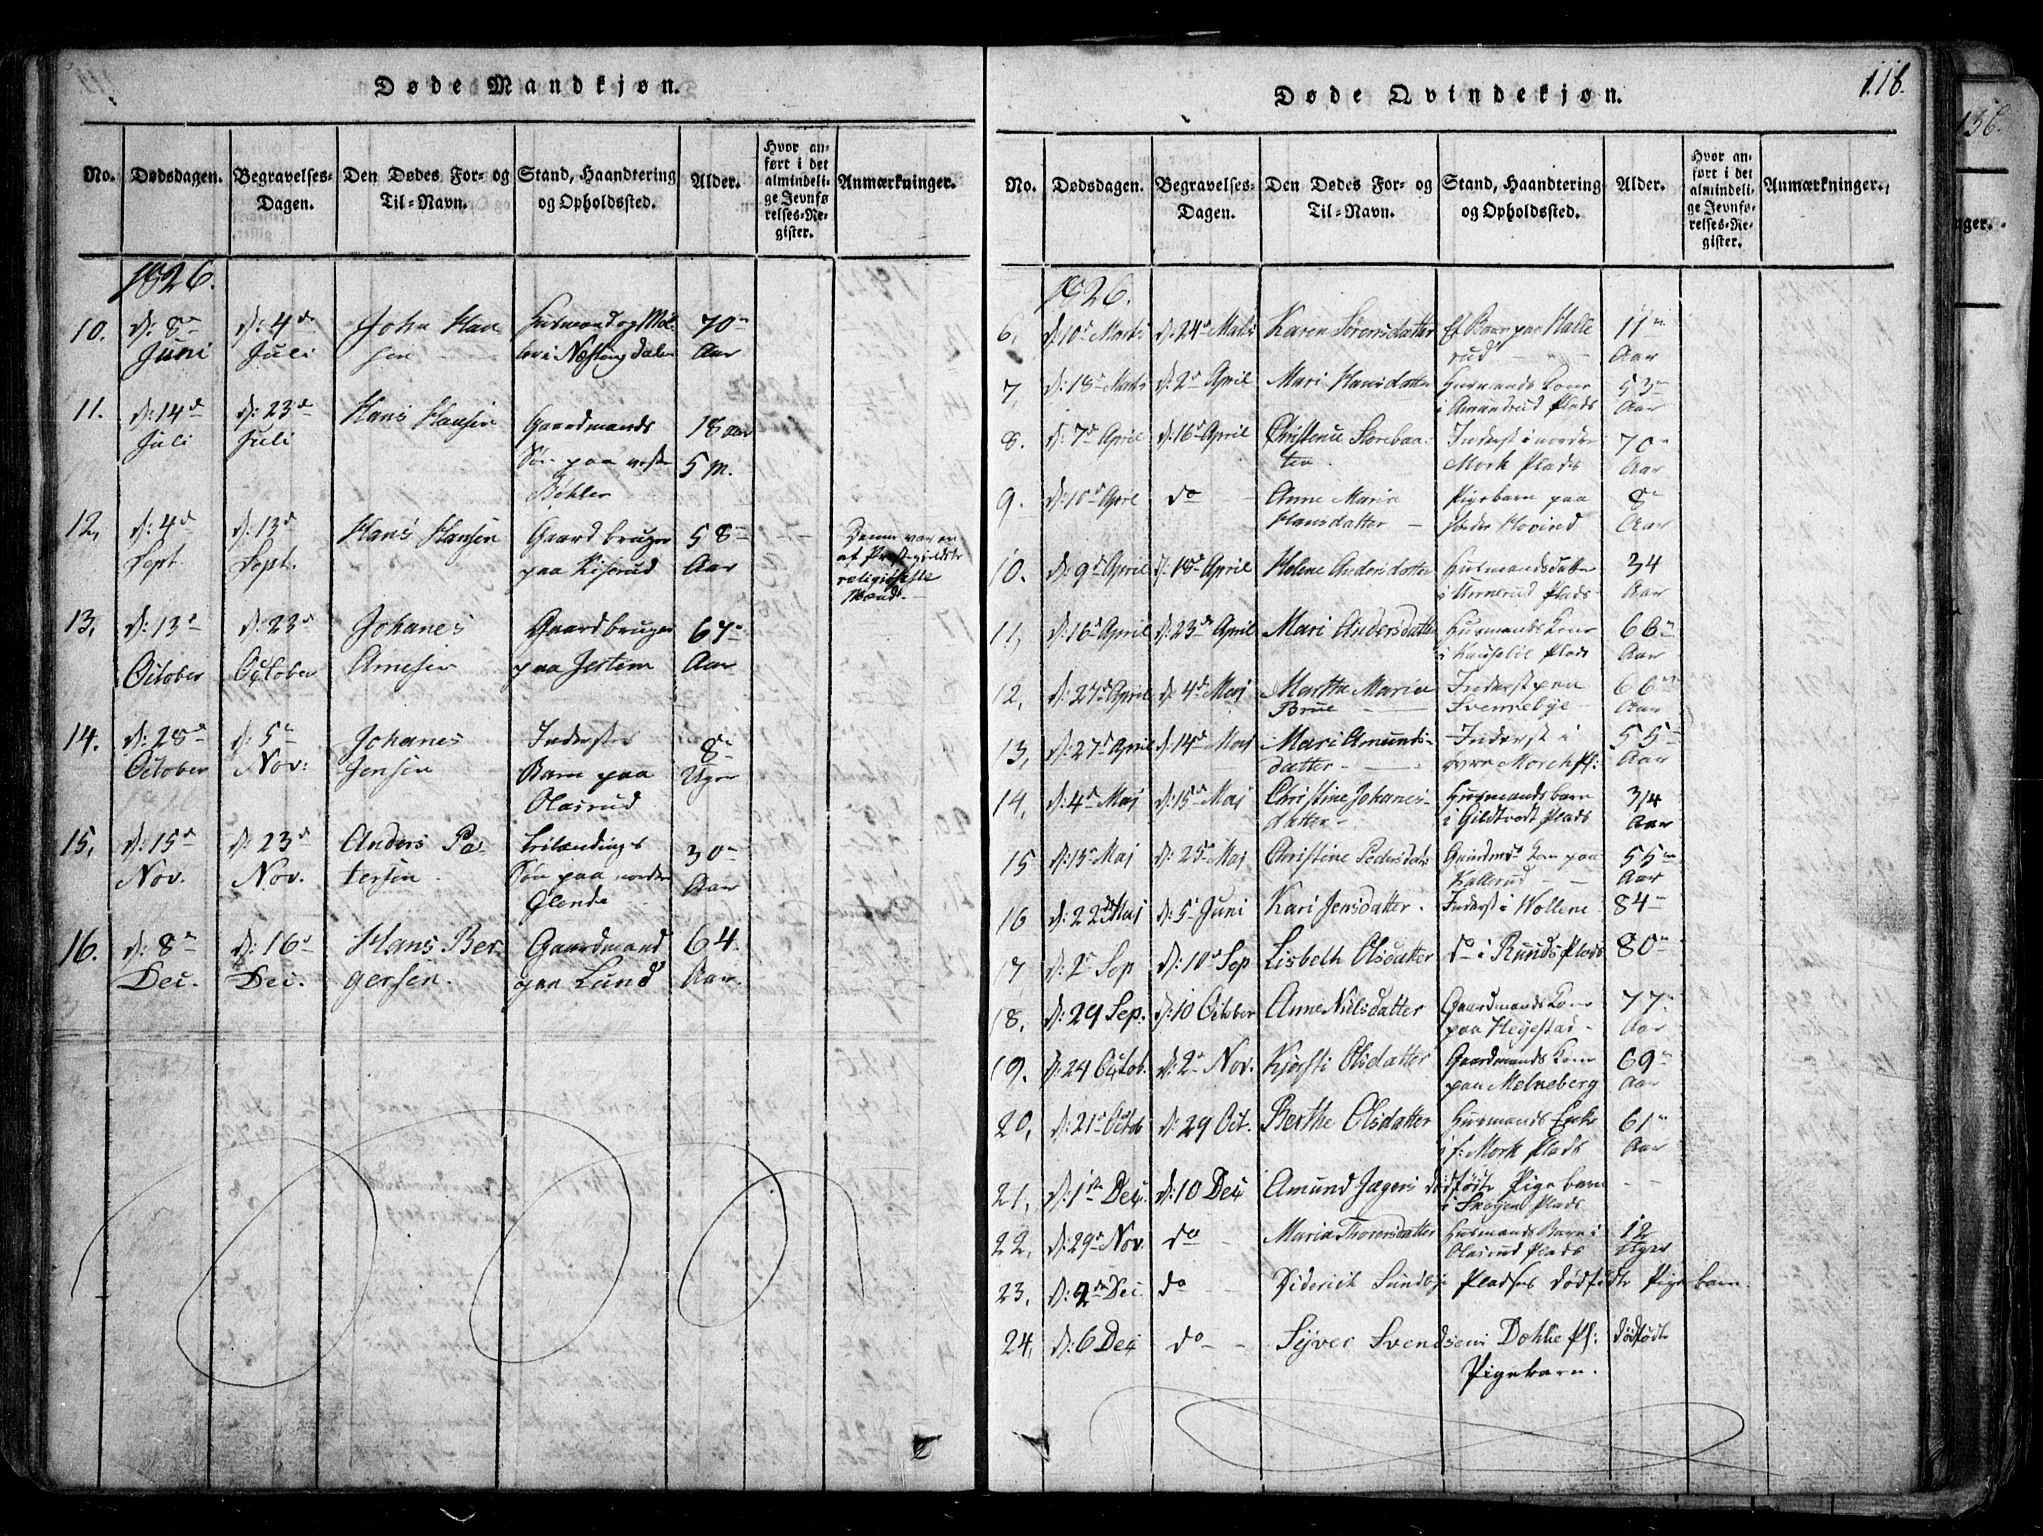 Døde Mandkjøn.
No. Dødsdagen. Begravelses-Dagen. Den Dødes For- og Til-Navn. Stand, Haandtering og Opholdssted. Alder. Hvor anført i det almindelige Jevnførelses-Register. Anmærkninger.
1826.
10. d: 8de Juni d: 4de Juli John Hansen Husmand og 70 Aar
11. d: 14de Juli d: 23de Juli Hans Hansen Gaardmands Søn paa Bøhler 18 Aar 5 M.
12, d: 4de Sept. d: 13de Sept. Hans Hansen Gaardbruger paa Kiserud 58 Aar Denne var en af religiøseste Mænd.
13, d: 13de October d: 23de October Johanes Arnesen Gaardbruger paa Jestem 67 Aar
14. d: 28de October d: 5te Nov: Johanes Jensen Inderst Barn paa Olasrud 8 Uger
15, d: 15de Nov. d: 23de Nov. Anders Petersen Søn paa nordre Glende 30 Aar
16. d: 8de Dec. d: 16de Dec. Hans Bergersen Gaardmand paa Lund 64. Aar.
Døde Qvindekjøn.
118.
136.
No. Dødsdagen. Begravelses-Dagen. Den Dødes For- og Til-Navn. Stand, Haandtering og Opholdssted. Alder. Hvor anført i det almindelige Jevnførelses-Register. Anmærkninger.
nger.
1826.
6, d: 10de Marts d: 24de Marts Karen Sørensdatter Et Barn paa Hallerud 11 Aar
7, d: 18de Marts d: 2de April Mari Hansdatter Husmands Kone i Amundrud Plads 53 Aar
8. d: 7de April d: 16de April Christence Inderst i nordre Mork Plads 70 Aar
9. d: 10de April do Anne Maria Hansdatter Pigebarn paa Hovind 8 Aar
10. d: 9de April d: 18de April Helene Andersdatter i Plads 34 Aar
11, d: 16de April d: 23de April Mari Andersdatter Husmands Kone i Plads 66 Aar
12, d: 27de April d: 4de Maj Marthe Maria Brue Inderst paa Svennebye 66 Aar
13, d: 27de April d: 14de Maj Mari Amundsdatter Inderst i Morch Pl: 55 Aar
14, d: 4de Maj d: 15de Maj Christine Johanesdatter Husmandsbarn i Gildtvedt Plads 3/4 Aar
15 d: 15de Maj d: 25de Maj Christine Pedersdatter Kone paa Kallerud 55 Aar
16 d: 22de Maj d: 5te Juni Kari Jensdatter Inderst i Wollene 84
17 d: 2de Sep d: 10de Sep Lisbeth Olsdatter do i Runds Plads 80
18, d: 29 Sep. d: 10 October Anne Nielsdatter Gaardmands Kone paa Heyestad 77 Aar
19. d: 24 Octob. d: 2de Nov. Kjersti Olsdatter Gaardmands Kone paa Melneberg 69 Aar
20, d: 21de Octob d: 29 Oct. Berthe Olsdatter Husmands Enke i s: Mork Plads 61 Aar
21, d: 1ste Dec. d: 10 Dec Amund Jægers dødfødte Pigebarn i Skøyen Plads
22, d: 29de Nov. do Maria Thorersdatter Husmands Barn i Olasrud Plads 12 Uger
23, d: 2de Dec. do Diderich Sundbye Pladses dødfødte Pigebarn.
24, d: 6 Dec do Syver Svendsens Dohle Pl: dødfødte Pigebarn.